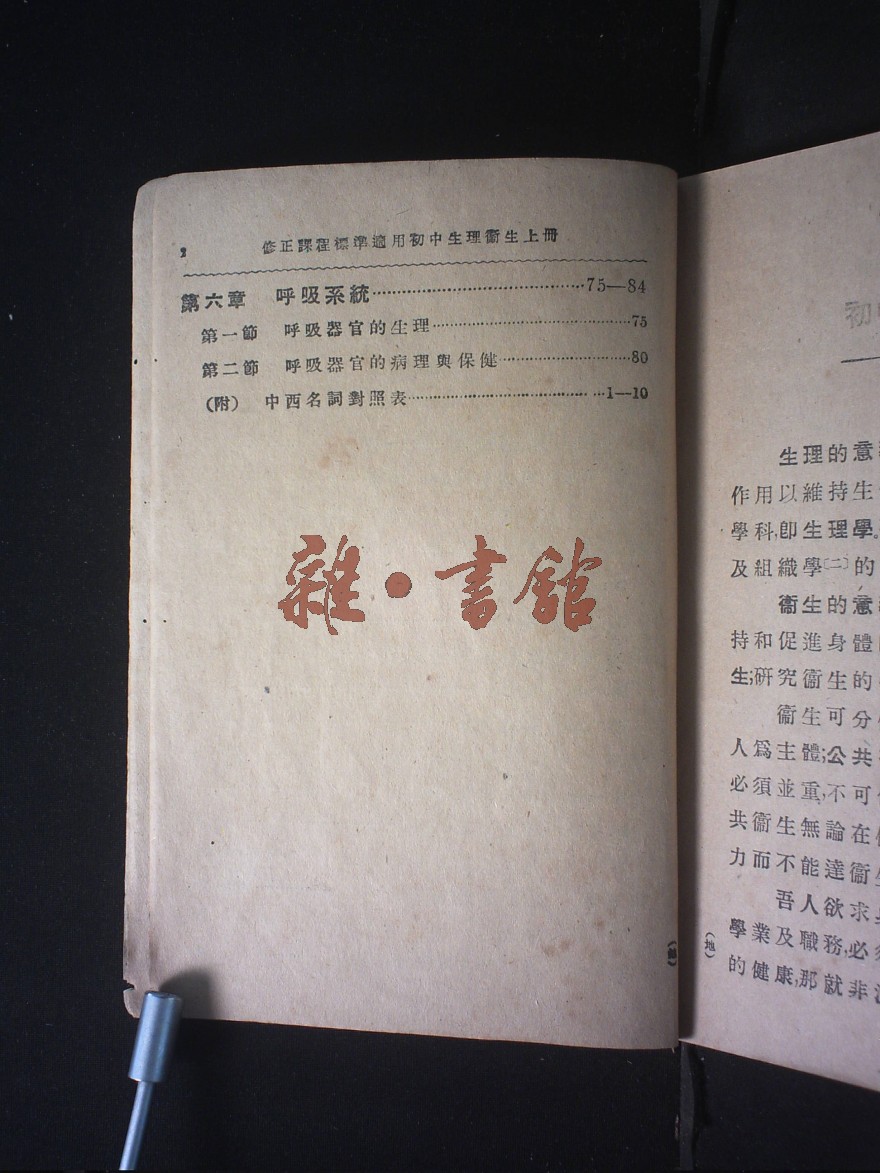 2 修正課程標準適用初中生理衞生上冊
第六章 呼吸系統……75—84
第一節 呼吸器官的生理……75
第二節 呼吸器官的病理與保健……80
(附) 中西名詞對照表……1—10
雜·書館
初
生理的意
作用以維持生
學科,即生理學。
及組織學〔二〕的
衞生的意
持和促進身體
生;研究衞生的
衞生可分
人爲主體;公共
必須並重,不可
共衞生無論在
力而不能達衞
吾人欲求
學業及職務,必
的健康,那就非
(地)